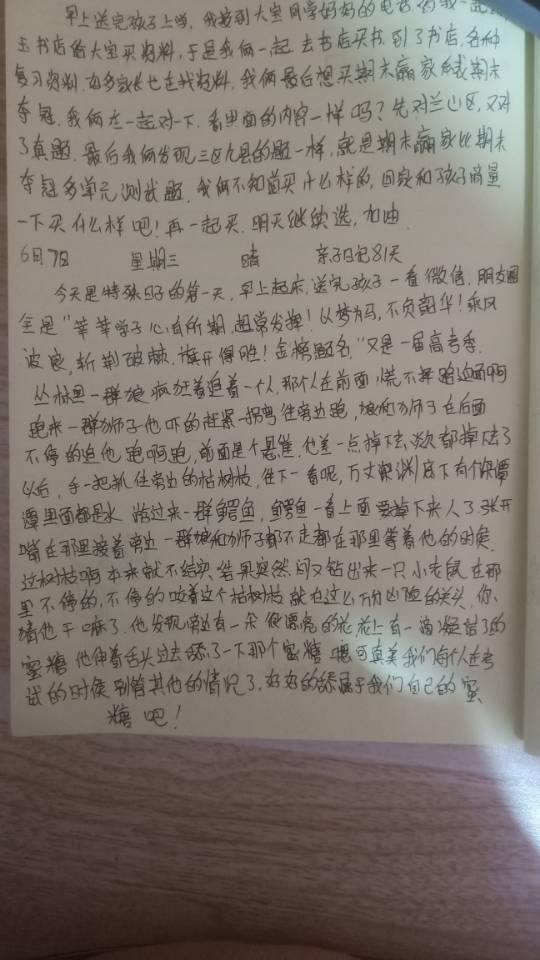 早上送完孩子上学，我接到大宝同学妈妈的电话约我一起去
书店给大宝买资料，于是我俩一起去书店买书，到了书店，各种
复习资料，好多家长也在找资料，我俩最后想买期末赢家或期末
夺冠，我俩在一起对一下，看里面的内容一样吗？先对兰山区，又对
了真题，最后我俩发现三区九县的题一样，就是期末赢家比期末
夺冠多单元测试题，我俩不知道买什么样的，回家和孩子商量
一下买什么样吧！再一起买，明天继续选，加油
6月7日 星期三 晴 亲子日记81天
今天是特殊日子的第一天，早上起床，送完孩子一看微信，朋友圈
全是“莘莘学子心有所期，超常发挥！以梦为马，不负韶华！乘风
波浪，斩荆破棘，旗开得胜！金榜题名，”又是一届高考季，
丛林里一群狼疯狂着追着一个人，那个人在前面，慌不择路迎面啊
跑来一群狮子他吓的赶紧一拐弯往旁边跑，狼和狮子在后面
不停的追他跑啊跑，前面是个悬崖，他差一点掉下去，次都掉下去了
以后，手一把抓住旁边的枯树枝，往下一看呢，万丈深渊底下有个深潭
潭里面都是水 游过来一群鳄鱼，鳄鱼一看上面要掉下来人了，张开
嘴在那里接着旁边一群狼和狮子都不走都在那里等着他的时候，
这树枝啊本来就不结实，结果突然间又钻出来一只小老鼠，在那
里不停的，不停的咬着这个枯树枝就在这么万分凶险的关头，你
猜他干嘛了，他发现旁边有一朵很漂亮的花，花上有一滴凝结了的
蜜糖 他伸着舌头过去舔了一下那个蜜糖 嗯可真美我们每个人在考
试的时候别管其他的情况了，好好的舔属于我们自己的蜜
糖吧！